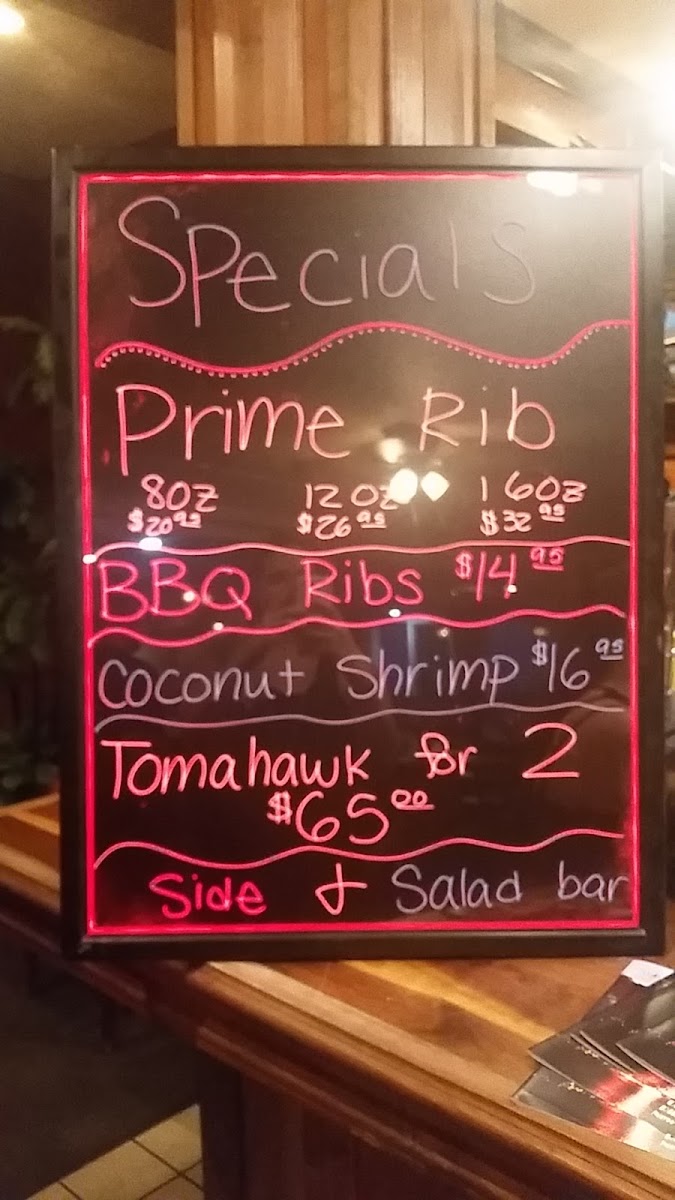 Specials
Prime Rib
8oz 12oz 16oz
$20.95 $26.95 $32.95
BBQ Ribs $14.95
Coconut Shrimp $16.95
Tomahawk for 2
$65.00
Side & Salad bar